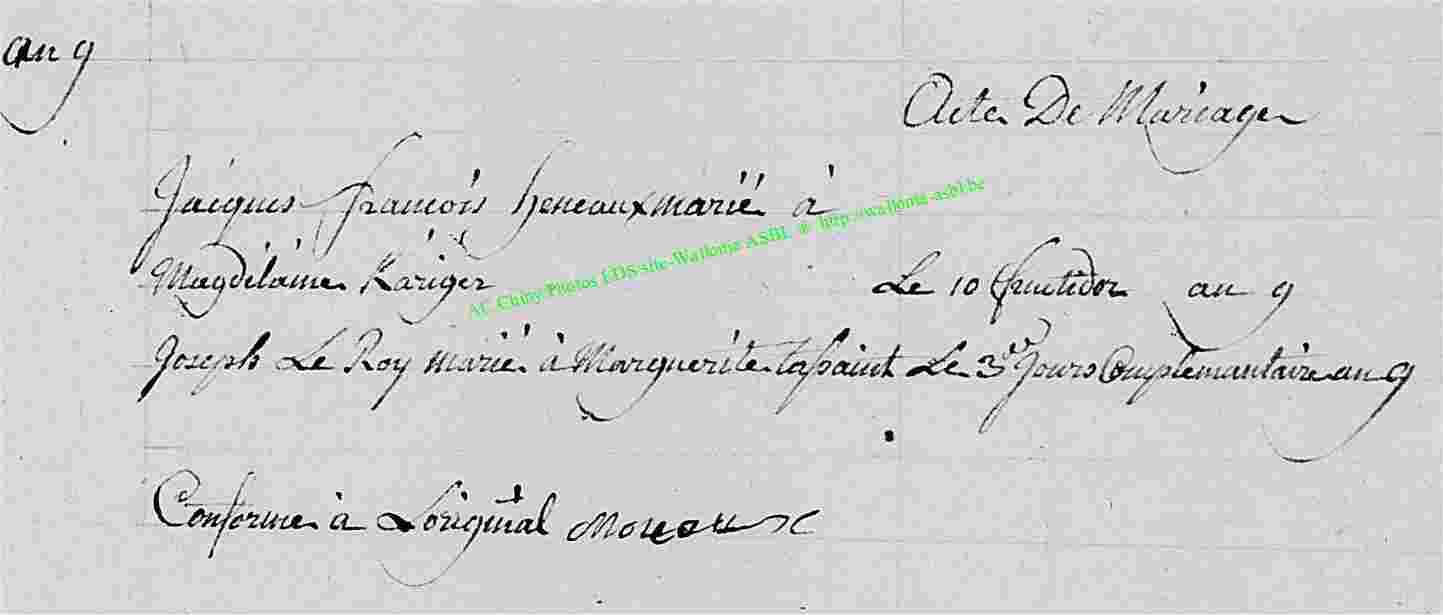 an 9
Acte De Mariage
Jacques françois heneaux marié à
Magdelaine Kariger Le 10 fructidor an 9
Joseph Le Roy marié à Marguerite Le 3 Jours Complemantaire an 9
Conforme à L'original
AC Chiny-Photos EDS-site-Wallonia ASBL ® http://wallonia-asbl.be